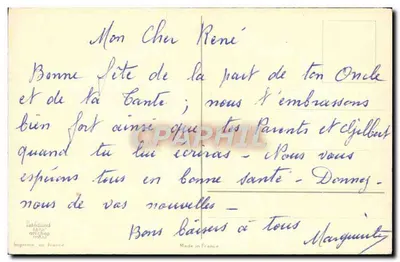 Mon Cher René
Bonne fête de la part de ton Oncle
et de ta Tante ; nous t'embrassons
bien fort ainsi que tes Parents et Gilbert
quand tu lui écriras - Nous vous
espérons tous en bonne santé - Donnez
nous de vos nouvelles -
Bons baisers à tous
Marguerite
Made in France
CPAPHIL